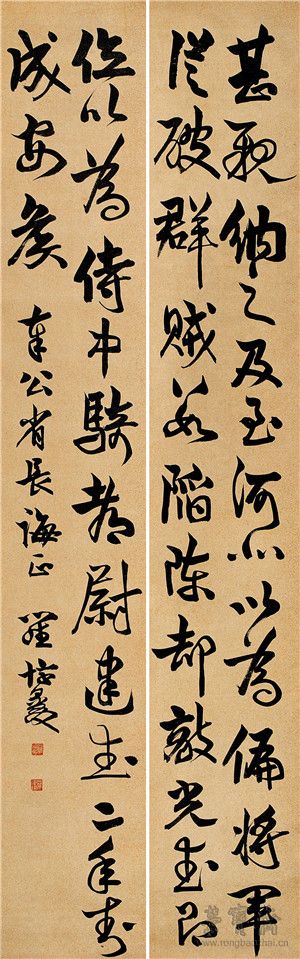 甚親納之及至河北以為偏將軍
從破群賊數陷陳却敵光武即
位以為侍中騎都尉建武二年封
成安侯
公省長誨正
培
榮寶齋
www.rongbaozhai.cn